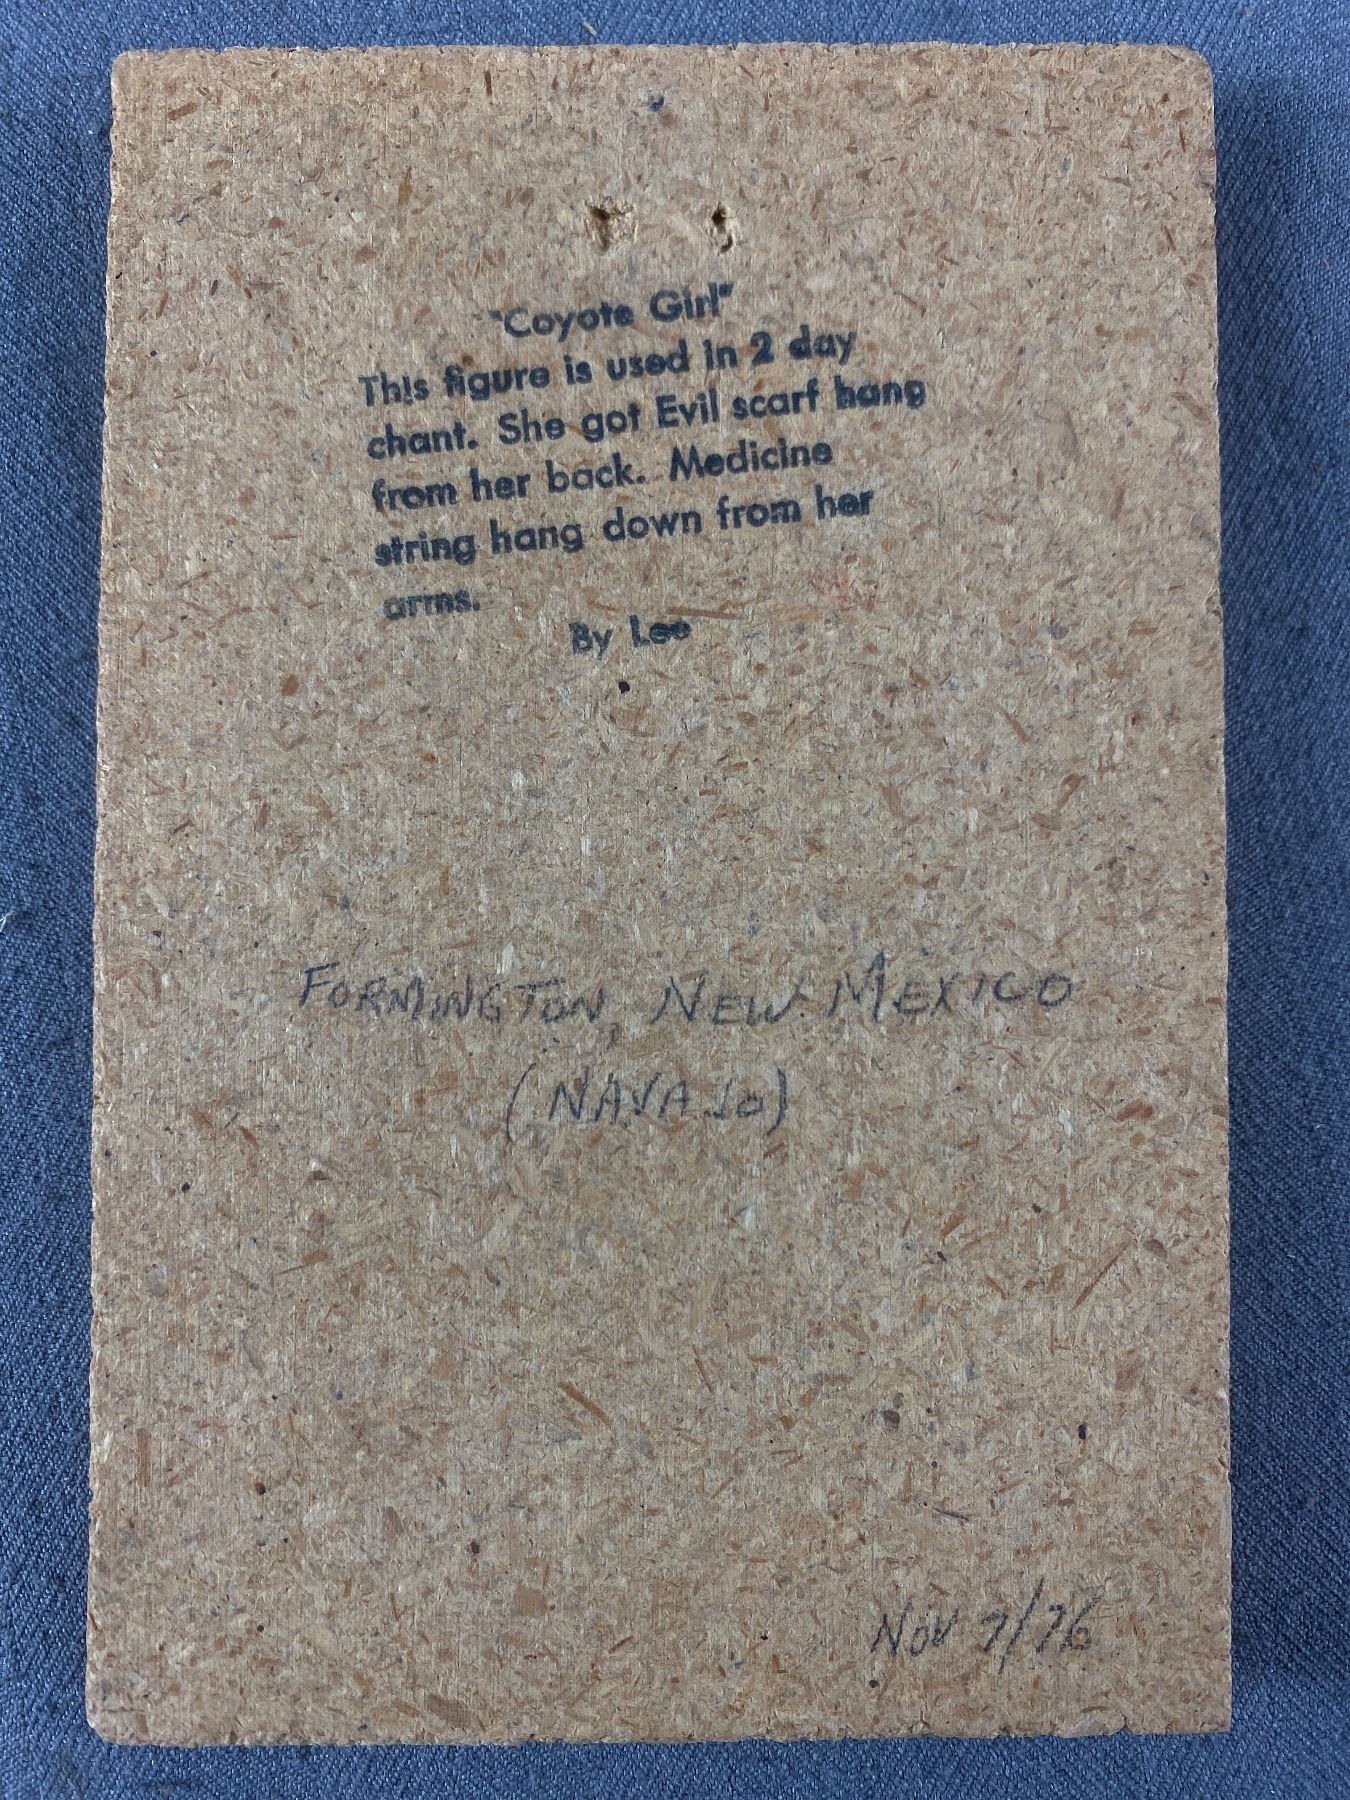 "Coyote Girl"
This figure is used in 2 day
chant. She got Evil scarf hang
from her back. Medicine
string hang down from her
arms.
By Lee
FORMINGTON, NEW MEXICO
(NAVAJO)
NOV 7/76